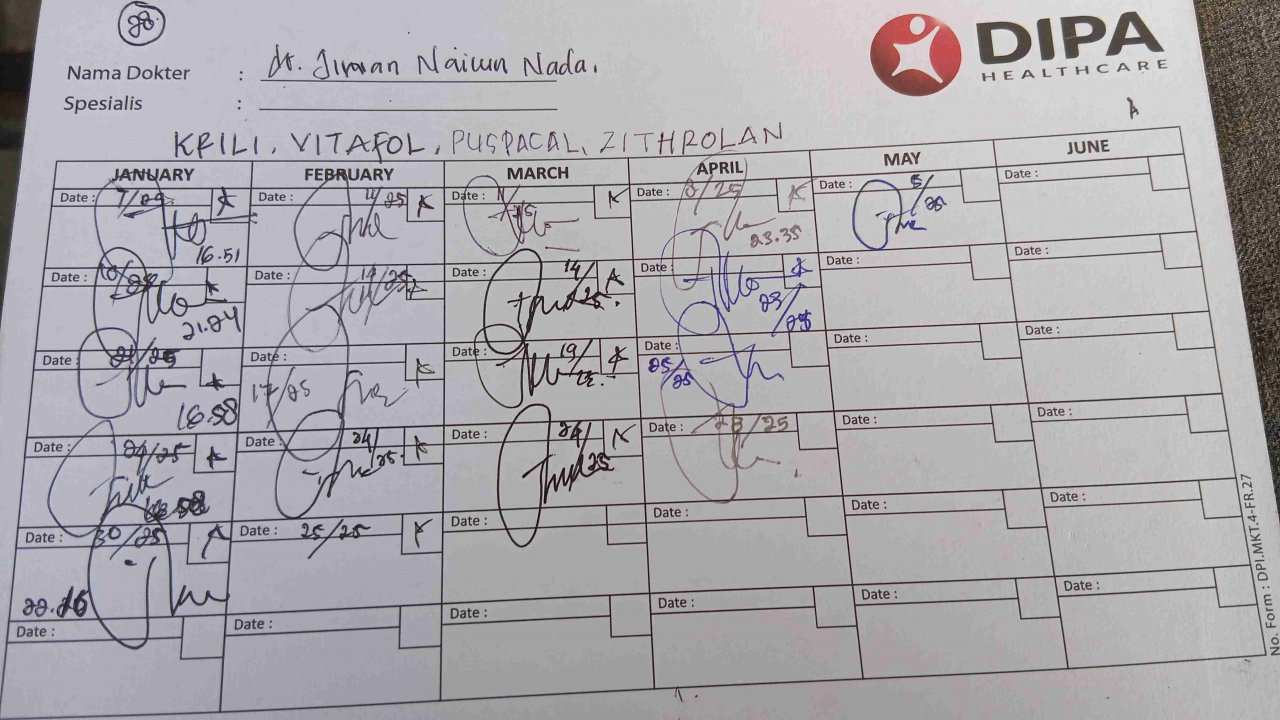 28
DIPA
HEALTHCARE
Nama Dokter : dr. Nada.
Spesialis :
KRILI, VITAFOL, PUSPACAL, ZITHROLAN
JANUARY FEBRUARY MARCH APRIL MAY JUNE
Date : Date : 11/25 Date : 11/25 Date : Date : 5/25 Date :
16.51 23.35
Date : Date : 14/25 Date : 14/25 Date : 23/25 Date : Date :
21.24
Date : 21/25 Date : 17/25 Date : 19/25 Date : 25/25 Date : Date :
16.58
Date : 24/25 Date : 24/25 Date : 24/25 Date : 28/25 Date : Date :
Date : 30/25 Date : 25/25 Date : Date : Date : Date :
22.26
Date : Date : Date : Date : Date : Date :
No. Form : DPI.MKT.4-FR.27